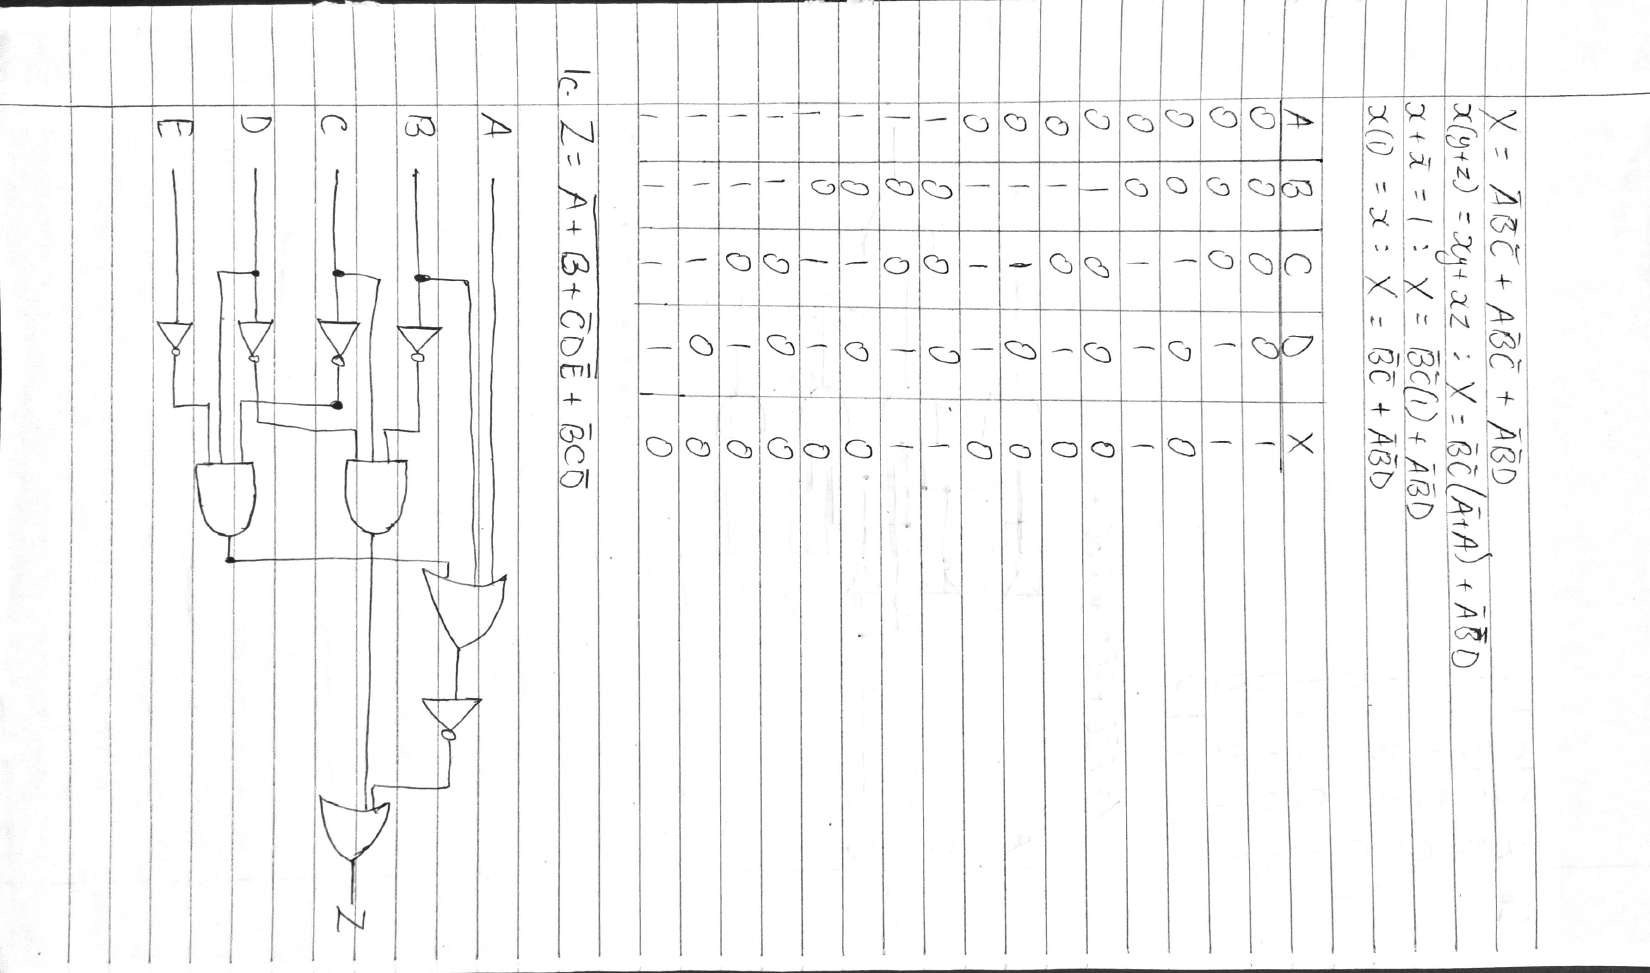 X = A̅B̅C̅ + AB̅C̅ + A̅B̅D
x(y+z) = xy+xz : X = B̅C̅(A̅+A) + A̅B̅D
x+x̅ = 1 : X = B̅C̅(1) + A̅B̅D
x(1) = x : X = B̅C̅ + A̅B̅D
A B C D X
0 0 0 0 1
0 0 0 1 1
0 0 1 0 0
0 0 1 1 1
0 1 0 0 0
0 1 0 1 0
0 1 1 0 0
0 1 1 1 0
1 0 0 0 1
1 0 0 1 1
1 0 1 0 0
1 0 1 1 0
1 1 0 0 0
1 1 0 1 0
1 1 1 0 0
1 1 1 1 0
1c. Z = \overline{A + B + C̅DE̅} + B̅CD̅
A
B
C
D
E
Z